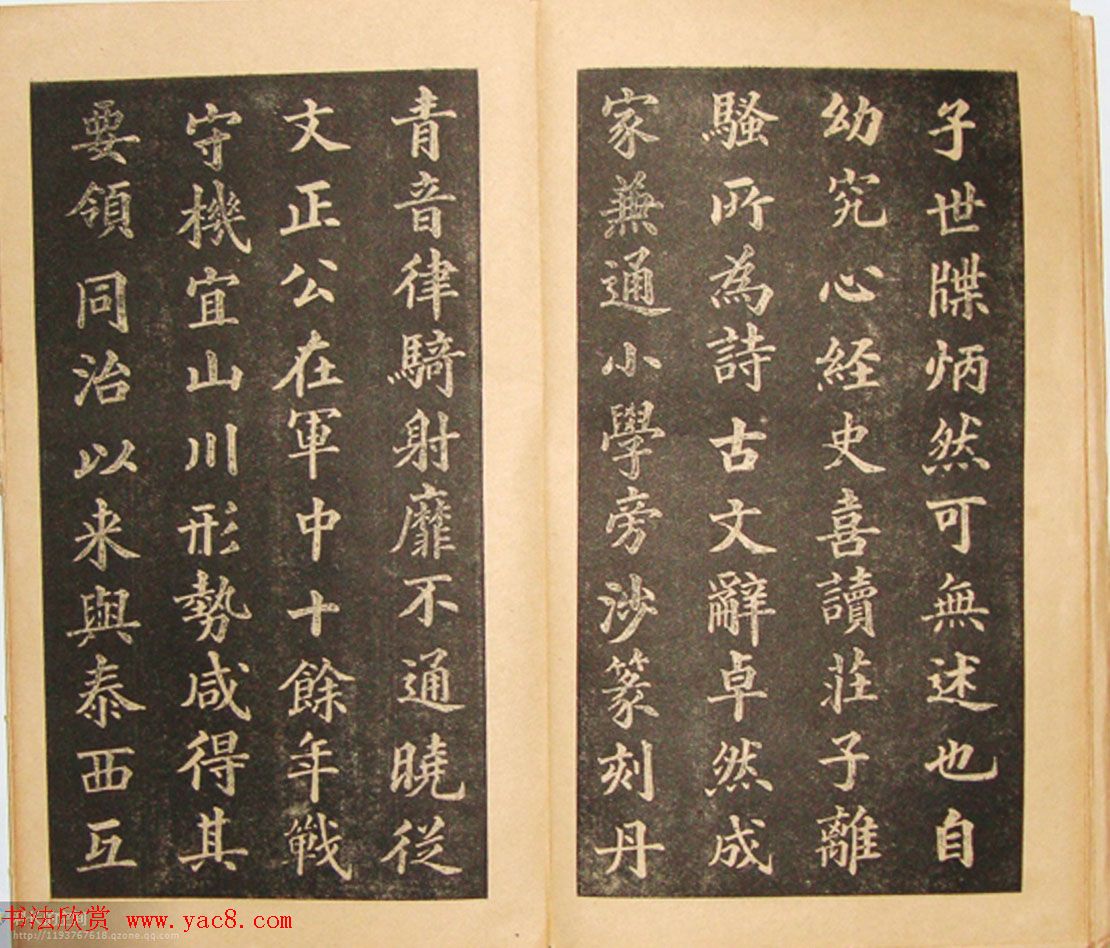 子世牒炳然可無述也自
幼究心経史喜讀莊子離
騷所為詩古文辭卓然成
家兼通小學旁涉篆刻丹
青音律騎射靡不通曉从
文正公在軍中十餘年戰
守機宜山川形勢咸得其
要領同治以来與泰西互
书法欣赏 www.yac8.com
http://1193767618.qzone.qq.com